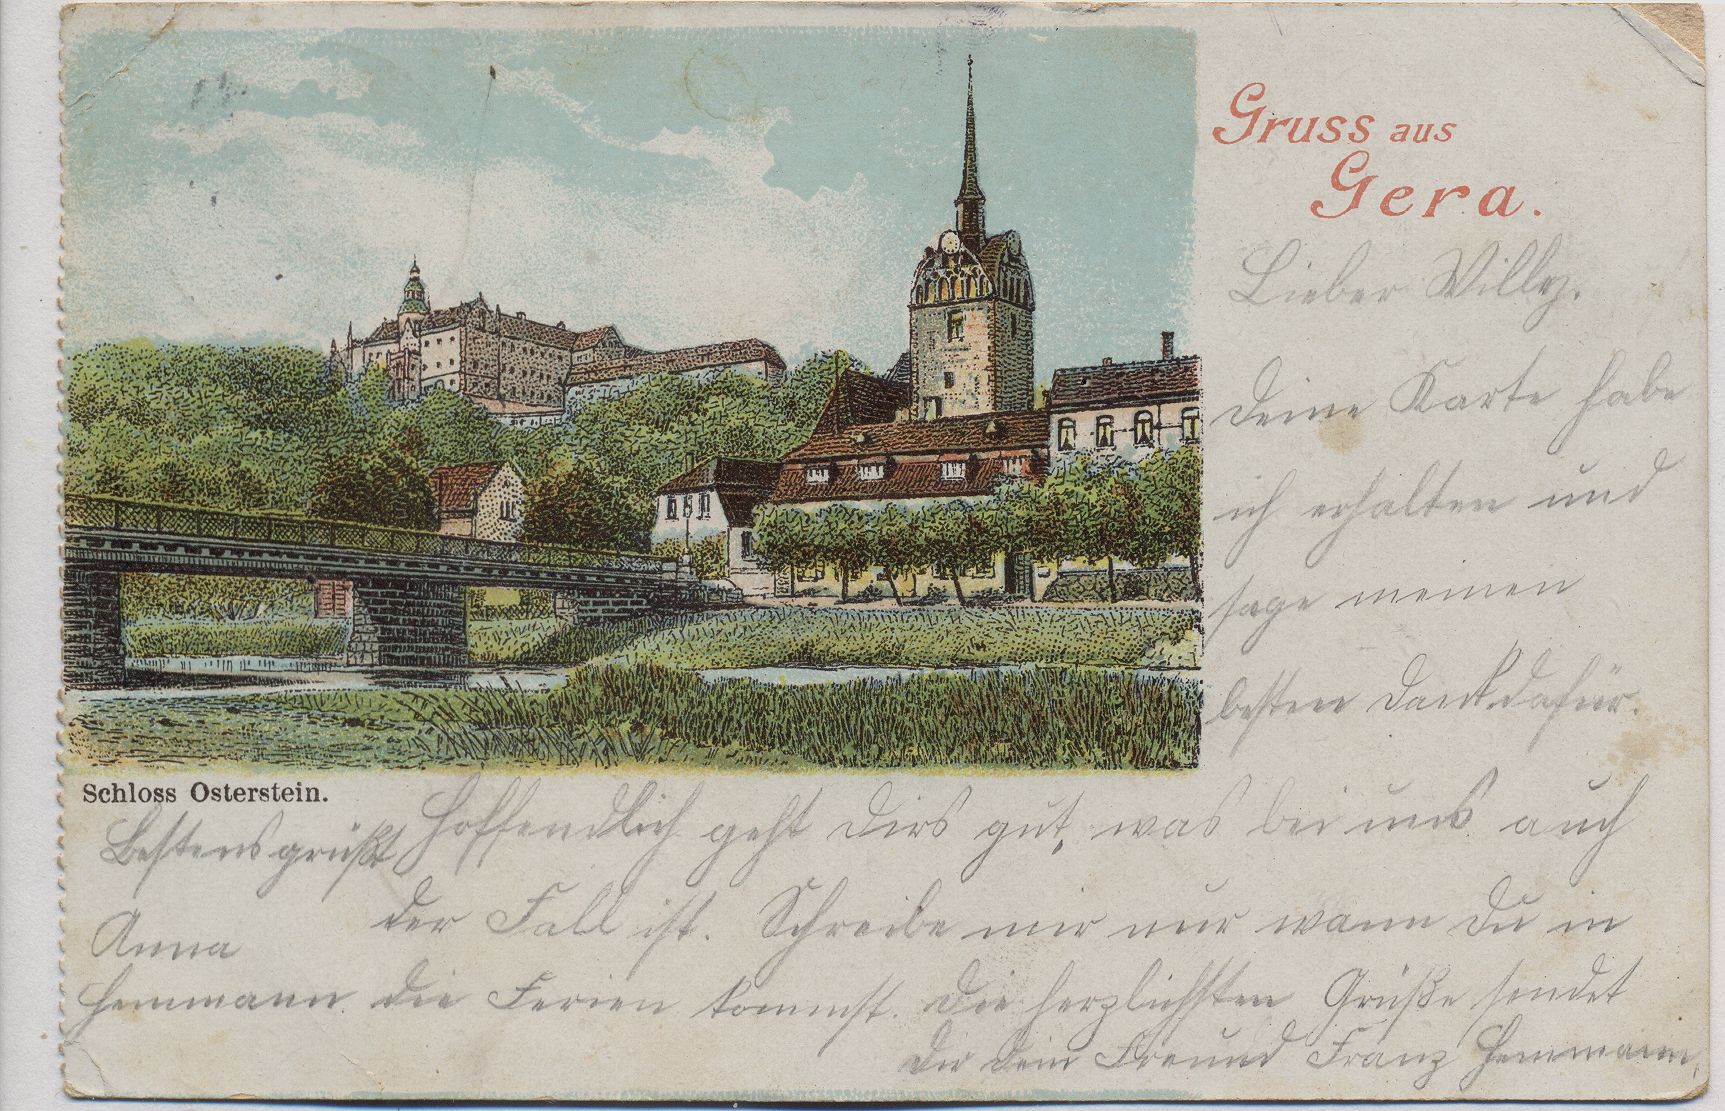 Gruss aus
Gera.
Lieber Willy.
Deine Karte habe
ich erhalten und
sage meinen
besten Dank dafür.
Schloss Osterstein.
Hoffendlich geht Dirs gut, was bei uns auch
der Fall ist. Schreibe mir nur wann Du in
die Ferien kommst. Die herzlichsten Grüße sendet
Dir dein Freund Franz Hemmann.
Bestens grüßt
Anna
Hemmann.